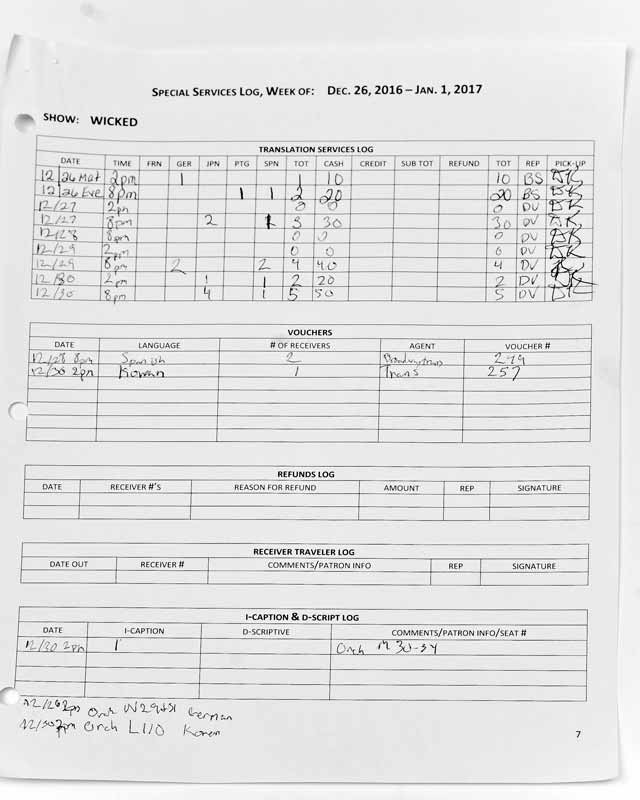 SPECIAL SERVICES LOG, WEEK OF: DEC. 26, 2016 – JAN. 1, 2017
SHOW: WICKED
TRANSLATION SERVICES LOG
DATE TIME FRN GER JPN PTG SPN TOT CASH CREDIT SUB TOT REFUND TOT REP PICK-UP
12 26 Mat 2pm 1 1 10 10 BS
12 26 Eve 8pm 1 1 2 20 20 BS
12/27 2pm 0 0 0 DV
12/27 8pm 2 1 3 30 30 DV
12/28 8pm 0 0 0 DV
12/29 2pm 0 0 0 DV
12/29 8pm 2 2 4 40 4 DV
12/30 2pm 1 1 2 20 2 DV
12/30 8pm 4 1 5 50 5 DV
VOUCHERS
DATE LANGUAGE # OF RECEIVERS AGENT VOUCHER #
12/28 8pm Spanish 2
12/30 2pm Korean 1 Trans 257
REFUNDS LOG
DATE RECEIVER #'S REASON FOR REFUND AMOUNT REP SIGNATURE
RECEIVER TRAVELER LOG
DATE OUT RECEIVER # COMMENTS/PATRON INFO REP SIGNATURE
I-CAPTION & D-SCRIPT LOG
DATE I-CAPTION D-SCRIPTIVE COMMENTS/PATRON INFO/SEAT #
12/30 2pm 1 Orch M 30-34
12/26 2pm Orch W29+31 German
12/30 2pm Orch L110 Korean
7